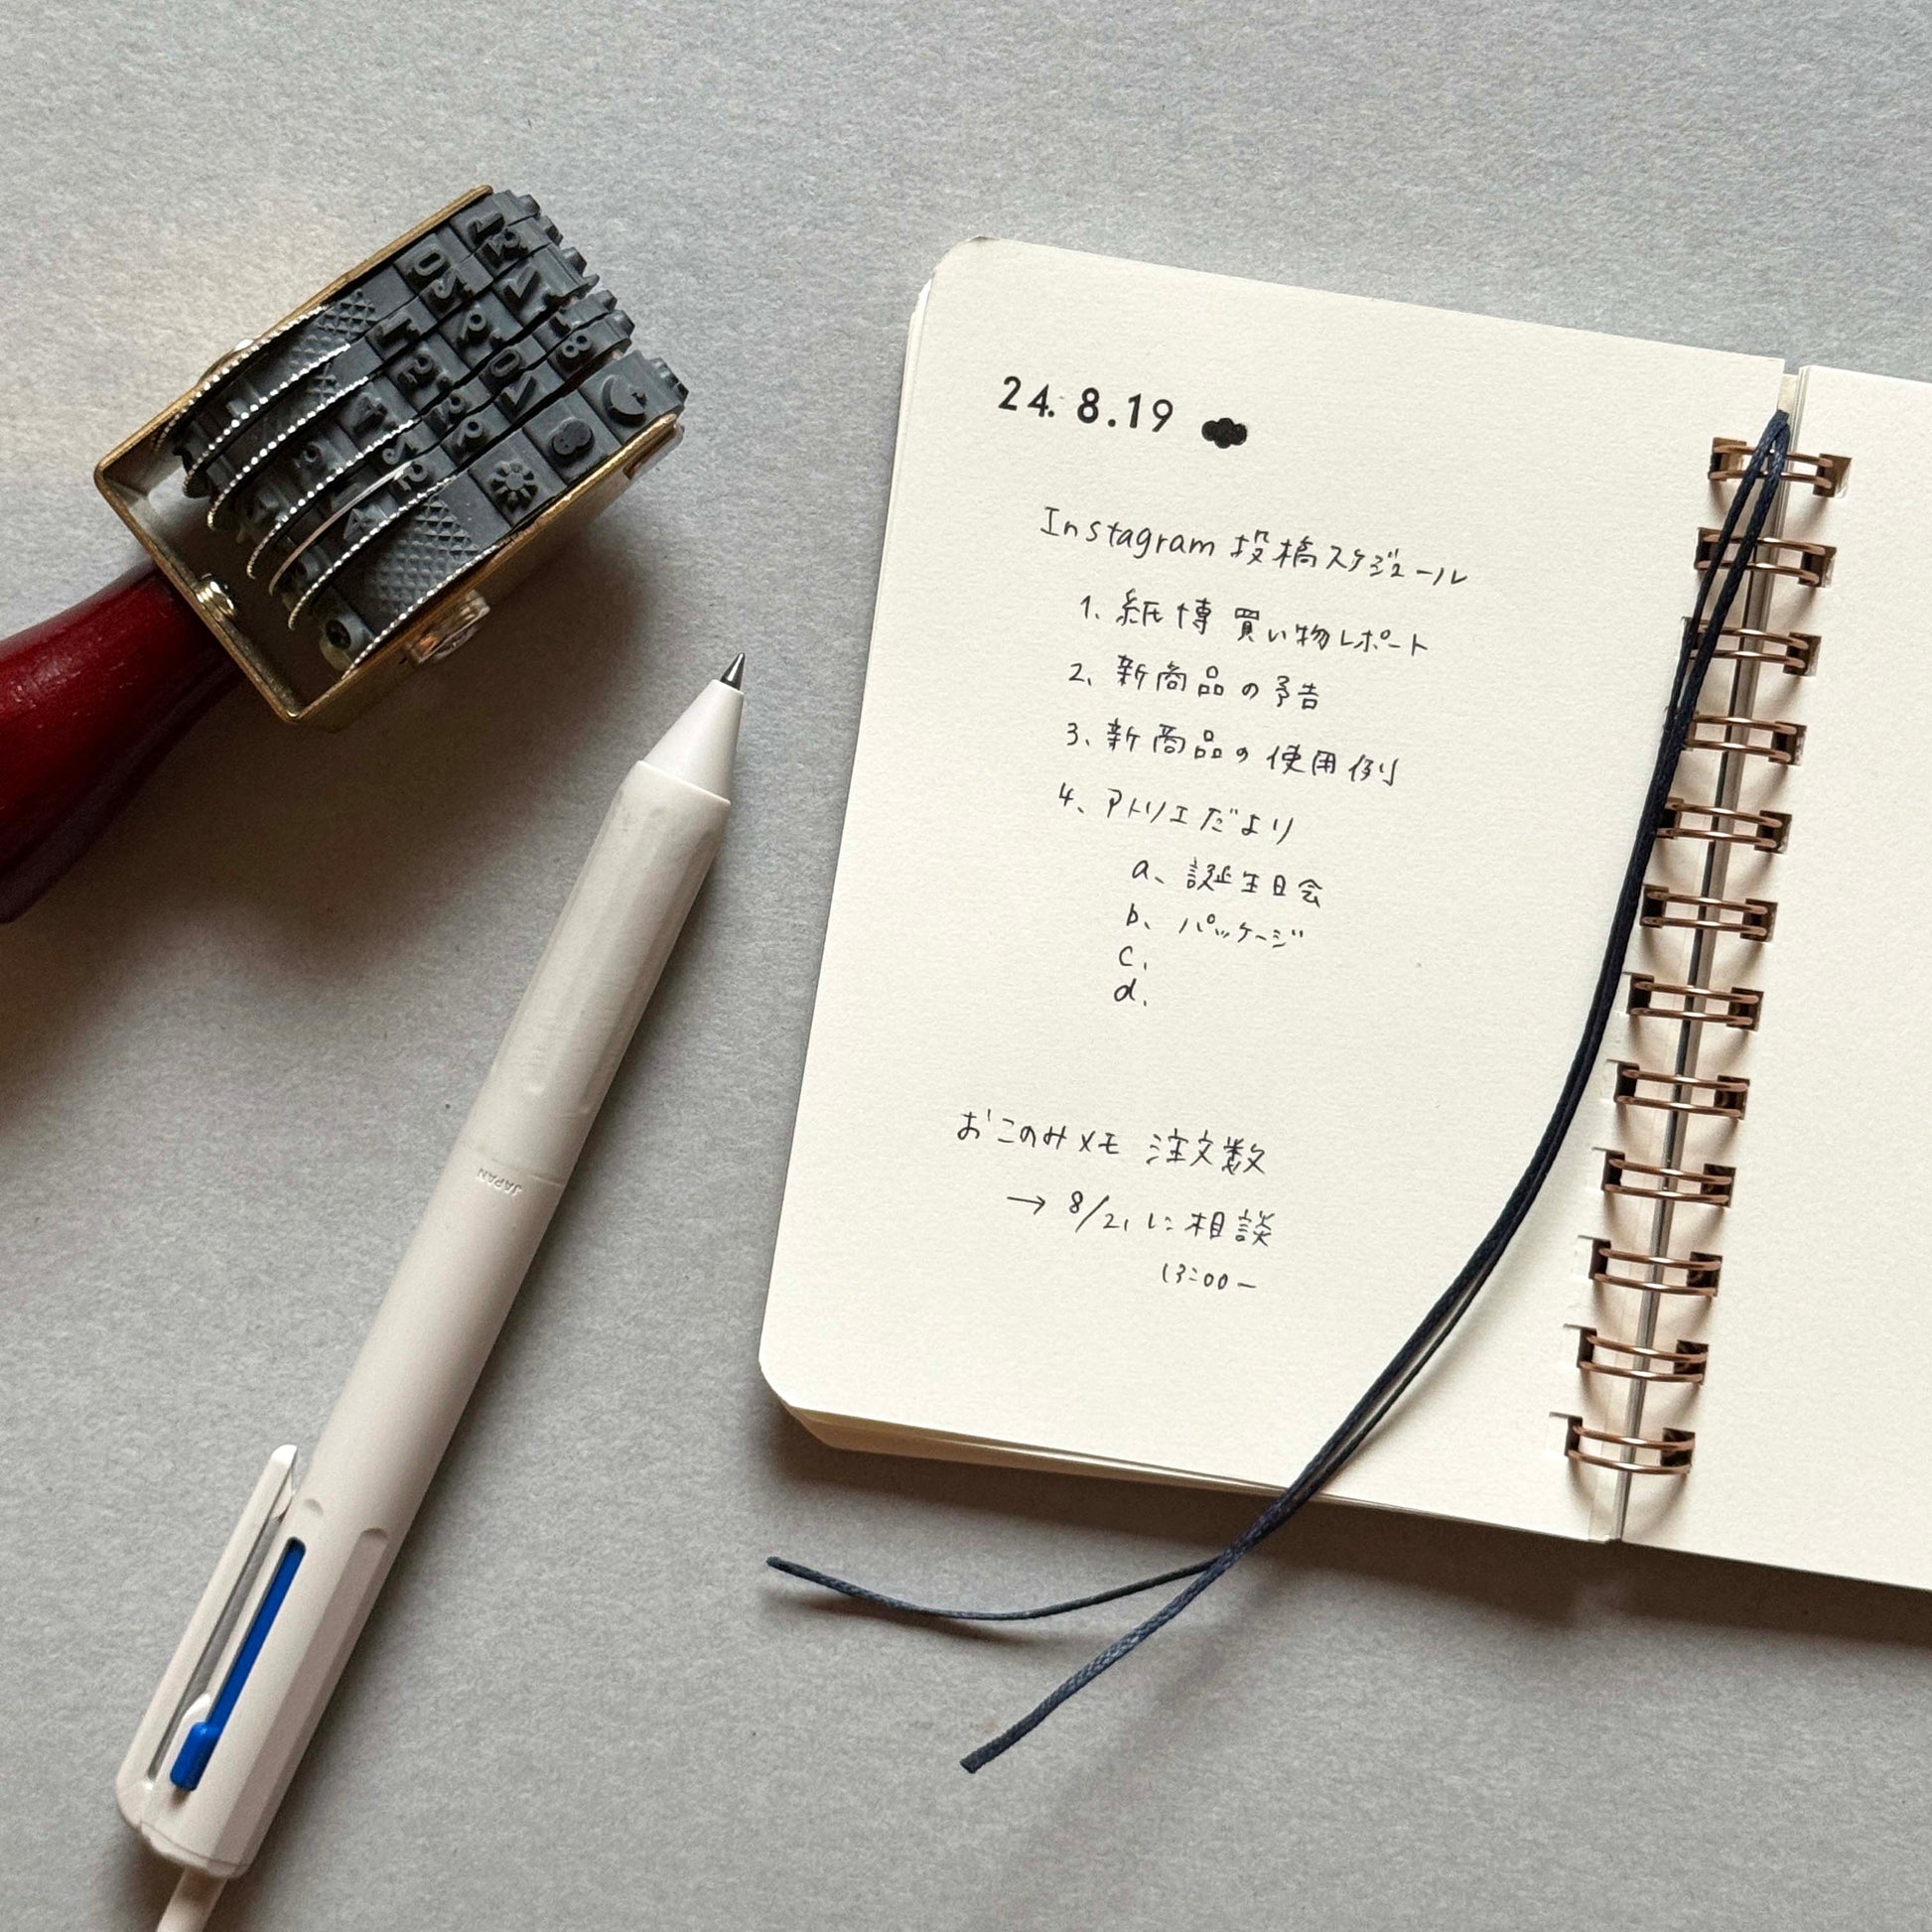 24.8.19
Instagram 投稿スケジュール
1. 紙博 買い物レポート
2、新商品の予告
3、新商品の使用例
4、アトリエだより
a、誕生日会
b、パッケージ
c.
d.
おこのみメモ 注文数
→ 8/21に相談
13:00ー
JAPAN